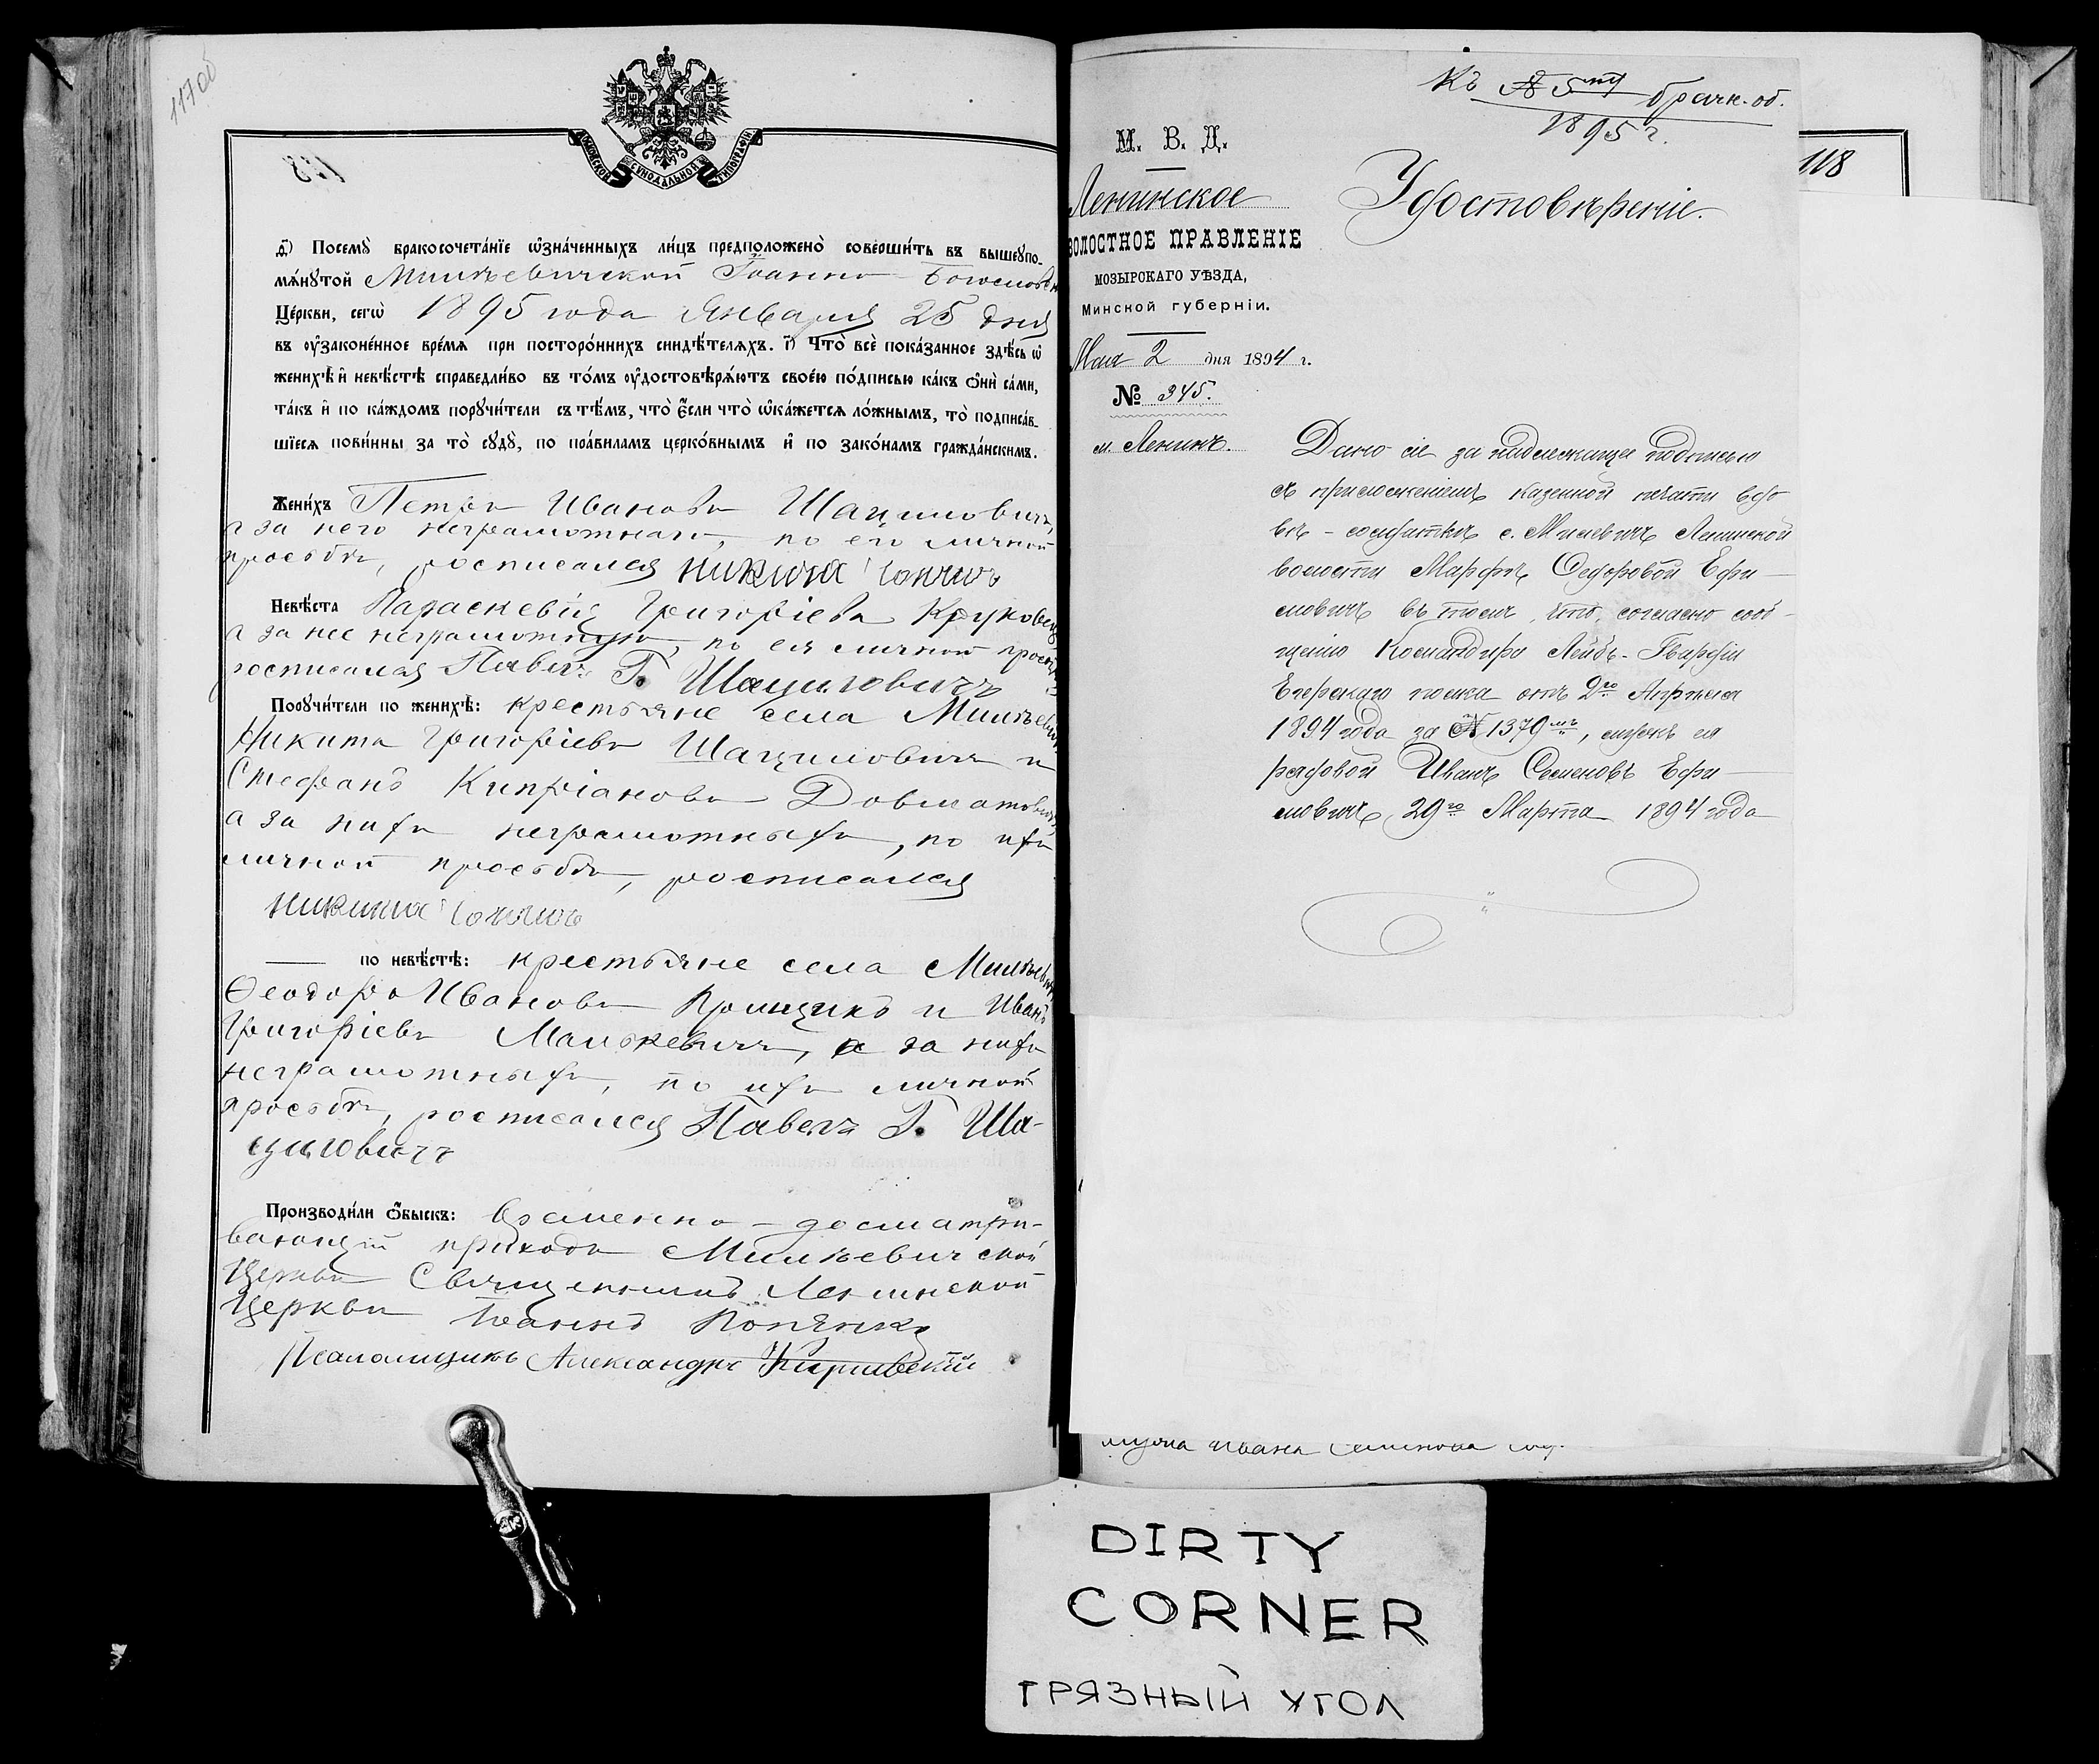 117об
МОСКОВСКОЙ СѴНОДАЛЬНОЙ ТИПОГРАФІИ
д҃) Посемꙋ̀ бракосочета́нїе ѡ҆зна́ченныхъ ли́цъ предположено̀ соверши́ть въ вышеꙋпо-
мѧ́нꙋтой Милѣвичской Іоанно-Богословск
Це́ркви, сегѡ̀ 1895 года Января 25 дня
въ ᲂу҆зако́ненное вре́мѧ при посторо́ннихъ свидѣ́телѧхъ. є҃) Что̀ всѐ пока́занное здѣ́сь ѡ҆
женихѣ̀ и҆ невѣ́стѣ справедли́во въ то́мъ ᲂу҆достовѣрѧ́ютъ свое́ю по́дписью ка́къ ѻ҆нѝ са́ми,
та́къ и҆ по ка́ждомъ порꙋчи́тели съ тѣ́мъ, что̀ є҆́сли что̀ ѡ҆ка́жетсѧ ло́жнымъ, то̀ подписа́в-
шїесѧ пови́нны за то̀ сꙋдꙋ̀, по пра́виламъ церко́внымъ и҆ по зако́намъ гражда́нскимъ.
Жени́хъ Петръ Ивановъ Шациловичъ,
а за него неграмотнаго, по его личной
просьбѣ, росписался Никита
Невѣ́ста Параскевія Григоріева Круковичъ
а за нее неграмотную, по ея личной просьбѣ
росписался Павелъ Г. Шациловичъ
Порꙋчи́тели по женихѣ̀: крестьяне села Милѣвичъ
Никита Григоріевъ Шациловичъ и
Стефанъ Кипріановъ Довматовичъ,
а за нихъ неграмотныхъ, по ихъ
личной просьбѣ, росписался
Никита
по невѣ́стѣ: крестьяне села Милѣвичъ
Ѳеодоръ Ивановъ и Иванъ
Григоріевъ Малькевичъ, а за нихъ
неграмотныхъ, по ихъ личной
просьбѣ, росписался Павелъ Г. Ша-
циловичъ
Производи́ли ѻ҆́быскъ: Временно-досматри-
вающій приходъ Милѣвичской
Церкви Священникъ Ленинской
Церкви Іоаннъ
Псаломщикъ Александръ
Къ № 5му брачн. об.
1895 г.
118
М. В. Д.
Ленинское
ВОЛОСТНОЕ ПРАВЛЕНІЕ
МОЗЫРСКАГО УѢЗДА,
Минской губерніи.
Мая 2 дня 1894 г.
№ 345.
м. Ленинъ.
Удостовѣреніе.
Дано сіе за надлежащею подписью
съ приложеніемъ казенной печати вдо
вѣ-солдаткѣ с. Милевичъ Ленинской
волости Марфѣ Федоровой Ефи-
мовичъ въ томъ, что, согласно сооб-
щенію Командира Лейбъ-Гвардіи
Егерскаго полка отъ 9го Апрѣля
1894 года за № 1379мъ, мужъ ея
рядовой Иванъ Семеновъ Ефи-
мовичъ 29го Марта 1894 года
мужа Ивана Семенова
DIRTY
CORNER
ГРЯЗНЫЙ УГОЛ